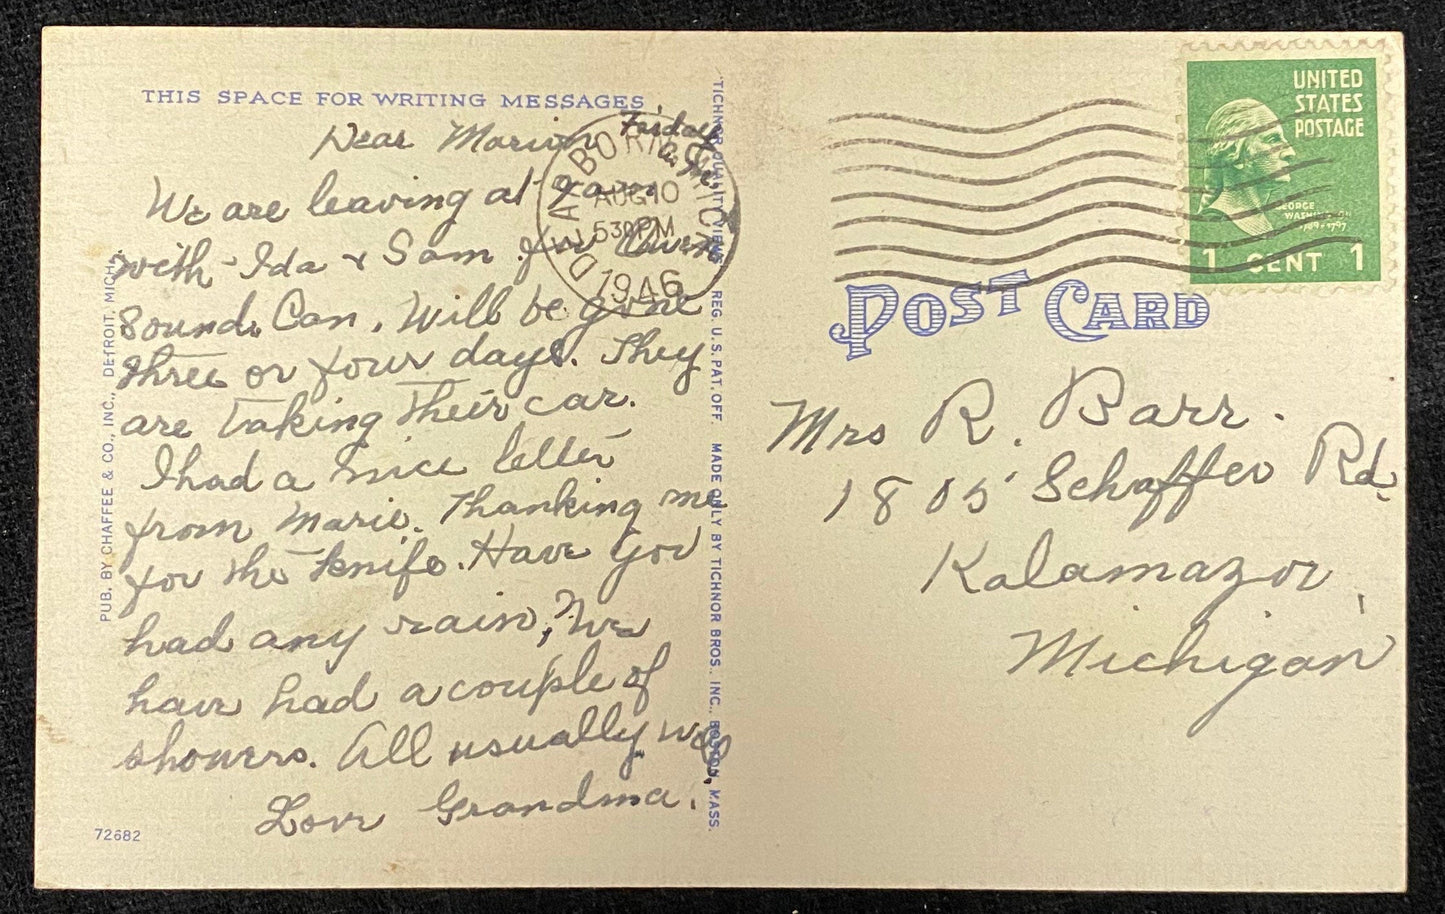 THIS SPACE FOR WRITING MESSAGES
Dear Marion Friday
We are leaving at
with Ida & Sam for Owen
Sound, Can. Will be gone
three or four days. They
are taking their car.
I had a nice letter
from Marie. Thanking me
for the knife. Have you
had any rain, We
have had a couple of
showers. All usually well,
Love Grandma.
72682
PUB. BY CHAFFEE & CO., INC., DETROIT, MICH.
TICHNOR QUALITY VIEWS REG. U.S. PAT. OFF. MADE ONLY BY TICHNOR BROS., INC., BOSTON, MASS.
DEARBORN MICH
AUG 10
530 PM
1946
UNITED
STATES
POSTAGE
GEORGE
WASHINGTON
1789-1797
1 CENT 1
POST CARD
Mrs R. Barr.
1805 Schaffer Rd.
Kalamazoo,
Michigan